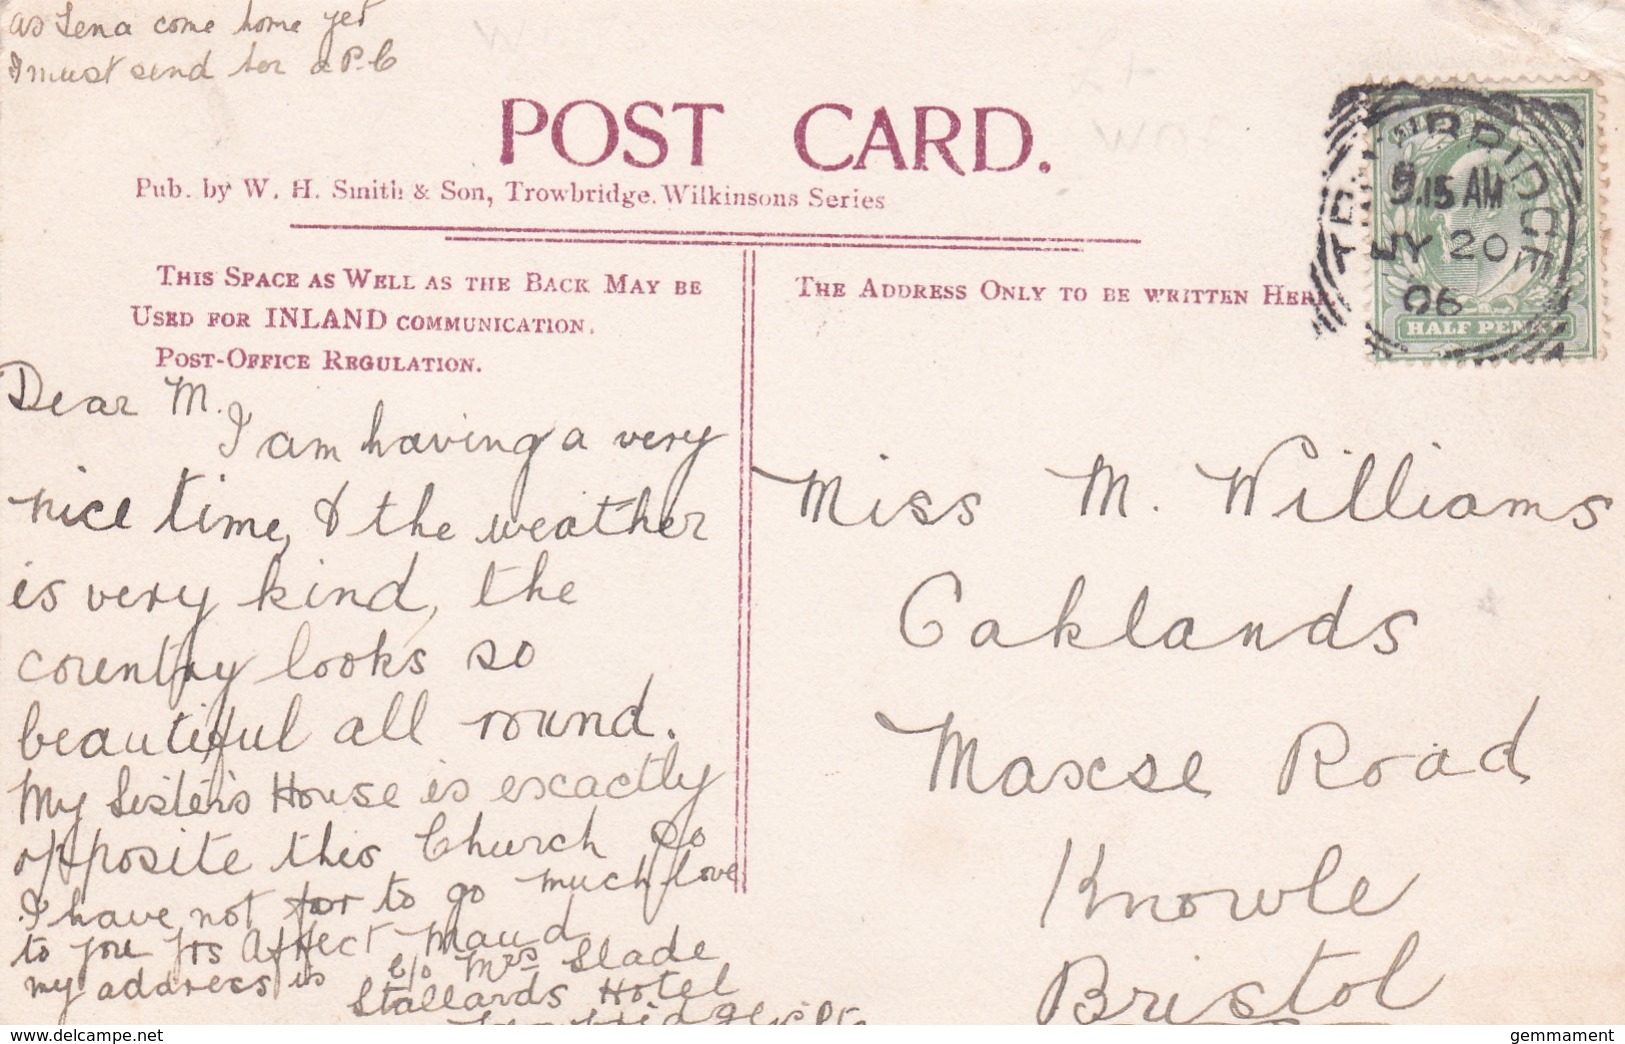 as Lena come home yet
I must send her a P.C
POST CARD.
Pub. by W. H. Smith & Son, Trowbridge. Wilkinsons Series
THIS SPACE AS WELL AS THE BACK MAY BE
USED FOR INLAND COMMUNICATION.
POST-OFFICE REGULATION.
THE ADDRESS ONLY TO BE WRITTEN HERE
TROWBRIDGE
9.15 AM
JY 20
06
HALF PENNY
Dear M.
I am having a very
nice time, & the weather
is very kind, the
country looks so
beautiful all round.
My Sister's House is excactly
opposite this Church so
I have not far to go much love
to you yrs Affect Maud
my address is c/o Mrs Slade
Stallards Hotel
Trowbridge Wilts
Miss M. Williams
Oaklands
Maxse Road
Knowle
Bristol
www.delcampe.net
gemmament